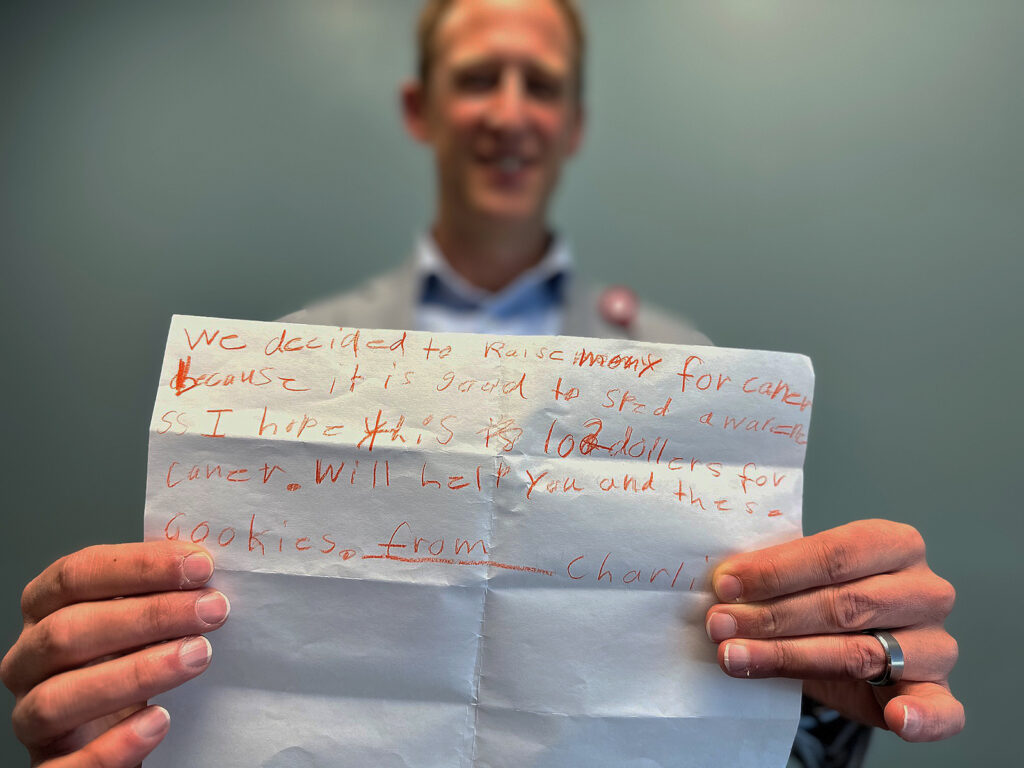 We decided to Raise mony for caner
because it is good to sped awarene
ss I hope this is 102 dollers for
caner. Will help you and these
Cookies. from Charli